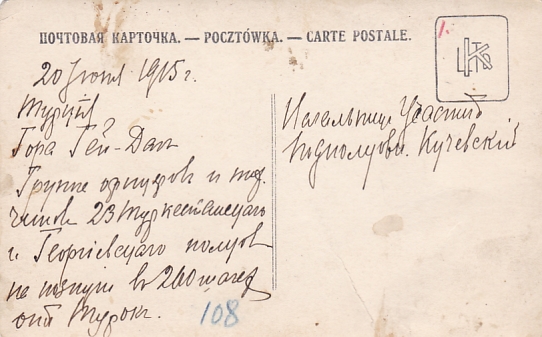 ПОЧТОВАЯ КАРТОЧКА. — POCZTÓWKA. — CARTE POSTALE.
20 Июня 1915 г.
Турція
Гора Гей-Даг
Группа офицеров и
чинов 23 Туркестанскаго
и Георгіевскаго полков
на позиціи в 200 шагах
от Турок.
Начальник Участка
подполковн. Кучевскій
108